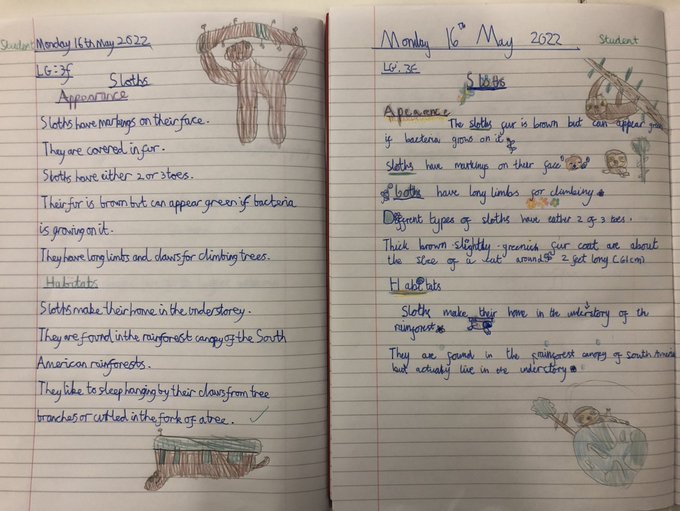 Student
Monday 16th May 2022
LG: 3f
Sloths
Appearance
Sloths have markings on their face.
They are covered in fur.
Sloths have either 2 or 3 toes.
Their fur is brown but can appear green if bacteria
is growing on it.
They have long limbs and claws for climbing trees.
Habitats
Sloths make their home in the understorey.
They are found in the rainforest canopy of the South
American rainforests.
They like to sleep hanging by their claws from tree
branches or curled in the fork of a tree.
Monday 16th May 2022
Student
LG: 3f
Sloths
Apearance
The sloths fur is brown but can appear green
if bacteria grows on it
Sloths have markings on their face
Sloths have long limbs for climbing
Different types of sloths have eather 2 of 3 toes.
Thick brown slightly greenish fur coat are about
the size of a cat around 2 feet long (61cm)
Habitats
Sloths make their home in the understory of the
rainforest
They are found in the rainforest canopy of South America
but actually live in the understory